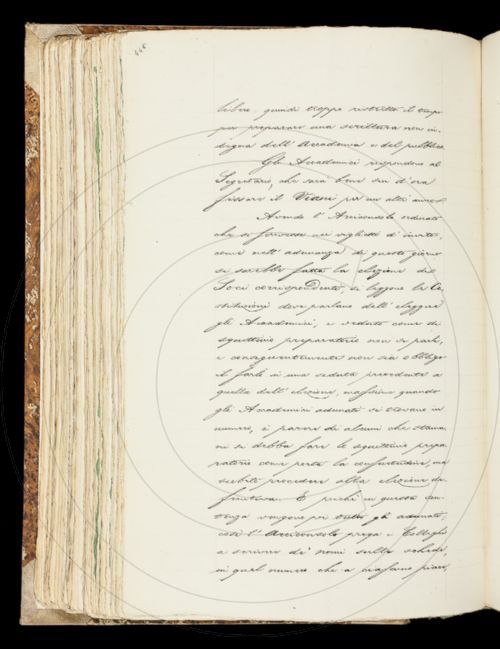 446
bebre. quindi troppo ristretto il tempo
per preparare una scrittura non in-
degna dell'Accademia e del pubblico.
Gli Accademici rispondono al
Segretario, che sarà bene sin d'ora
fissare il Visani per un altr' anno.
Avendo l'Arciconsolo ordinato
che si ponesse nei viglietti d'invito,
come nell'adunanza di questo giorno
si sarebbe fatta la elezione dei
Soci corrispondenti, si leggono le Co-
stituzioni dove parlano dell'eleggere
gli Accademici, e veduto come di
squittinio preparatorio non si parli,
e conseguentemente non sia obbligo
il farlo in una seduta precedente a
quella dell'elezione, massime quando
gli Accademici adunati si trovano in
numero, è parere di alcuni che stama-
ni si debba fare lo squittinio prepa-
ratorio come porta la consuetudine, ma
subito procedere alla elezione de-
finitiva. E perchè in questa sen-
tenza vengono per tutti gli adunati,
così l'Arciconsolo prega i Colleghi
a scrivere dei nomi sulle schede,
in quel numero che a ciascuno piace,